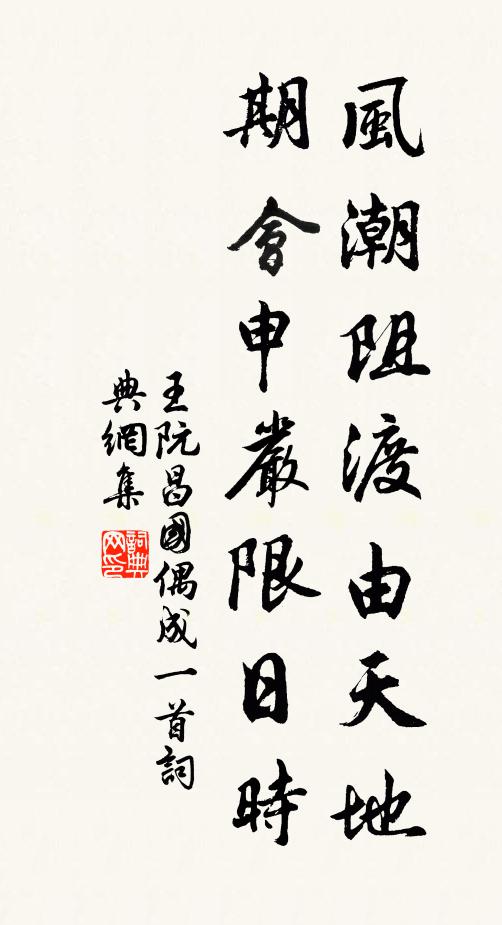 風潮阻渡由天地
期會申嚴限日時
王阮昌國偶成一首詞
典網集
詞典网印